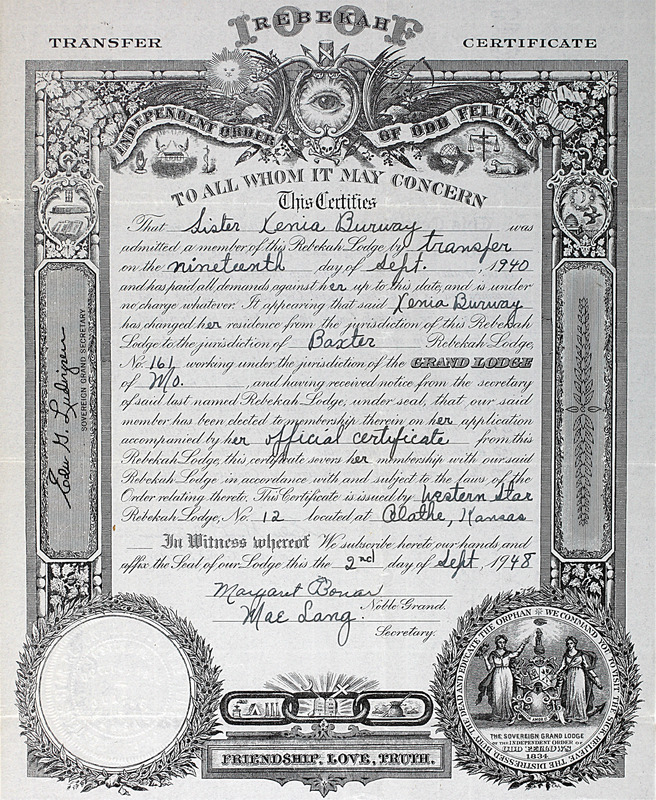 I O O F
REBEKAH
TRANSFER CERTIFICATE
INDEPENDENT ORDER OF ODD FELLOWS
TO ALL WHOM IT MAY CONCERN
This Certifies
That Sister Xenia Burway was
admitted a member of this Rebekah Lodge by transfer
on the nineteenth day of Sept. , 1940
and has paid all demands against her up to this date, and is under
no charge whatever. It appearing that said Xenia Burway
has changed her residence from the jurisdiction of this Rebekah
Lodge to the jurisdiction of Baxter Rebekah Lodge,
No. 161 working under the jurisdiction of the GRAND LODGE
of Mo. , and having received notice from the secretary
of said last named Rebekah Lodge, under seal, that our said
member has been elected to membership therein on her application
accompanied by her official certificate from this
Rebekah Lodge, this certificate severs her membership with our said
Rebekah Lodge in accordance with and subject to the laws of the
Order relating thereto. This Certificate is issued by Western Star
Rebekah Lodge, No. 12 located at Olathe, Kansas
In Witness whereof We subscribe hereto our hands and
affix the Seal of our Lodge this the 2nd day of Sept, 1948
Margaret Bonar
Noble Grand.
Mae Lang.
Secretary.
SOVEREIGN GRAND SECRETARY
WE COMMAND YOU TO VISIT THE SICK RELIEVE THE DISTRESSED BURY THE DEAD AND EDUCATE THE ORPHAN
THE SOVEREIGN GRAND LODGE
OF THE INDEPENDENT ORDER OF
ODD FELLOWS
1834
FRIENDSHIP, LOVE, TRUTH.